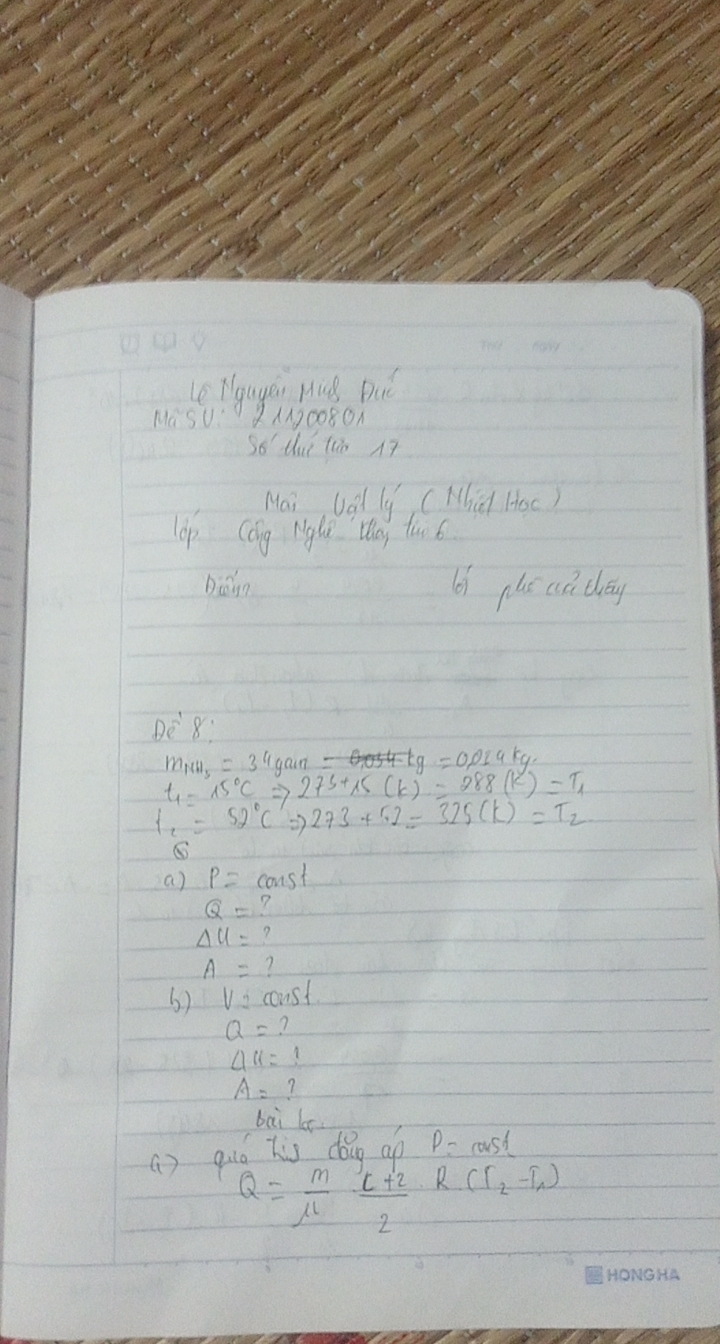 Lê Nguyễn Minh Đức
Mã SV: 211200801
Số thứ tự 17
Vật lý (Nhiệt Học)
lớp Công Nghệ 6
Điểm lời phê của thầy
Đề 8:
mNH3 = 34 gam = 0,034 kg = 0,034 kg.
t1 = 15°C => 273+15 (K) = 288 (K) = T1
t2 = 52°C => 273 + 52 = 325 (K) = T2
a) P = const
Q = ?
ΔU = ?
A = ?
b) V = const
Q = ?
ΔU = ?
A = ?
bài
a) quá đẳng áp P = const
Q = m/μ · i+2/2 · R (T2 - T1)
HONG HA